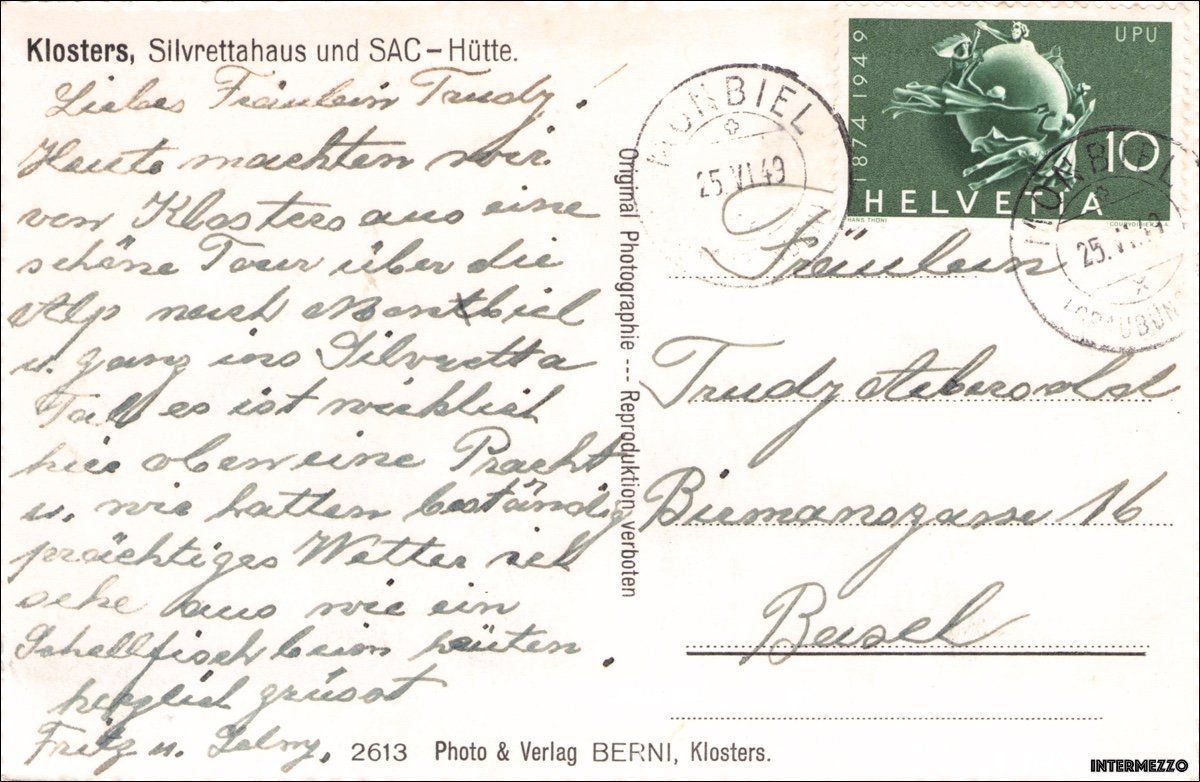 Klosters, Silvrettahaus und SAC–Hütte.
Liebes Fräulein Trudy.
Heute machten wir
von Klosters aus eine
schöne Tour über die
Alp nach Monbiel
u. ganz ins Silvretta
Tal es ist wirklich
hie oben eine Pracht
u. wir hatten beständig
prächtiges Wetter ich
sehe aus wie ein
Schellfisch beim häuten.
herzlich grüsst
Fritz u.
2613 Photo & Verlag BERNI, Klosters.
Original Photographie --- Reproduktion verboten
MONBIEL
25.VI.49
1874 1949
UPU
10
HELVETIA
HANS THÖNI
COURVOISIER S.A.
MONBIEL
25.VI.49
(GRAUBÜN
Fräulein
Trudy
Birmansgasse 16
Basel
INTERMEZZO